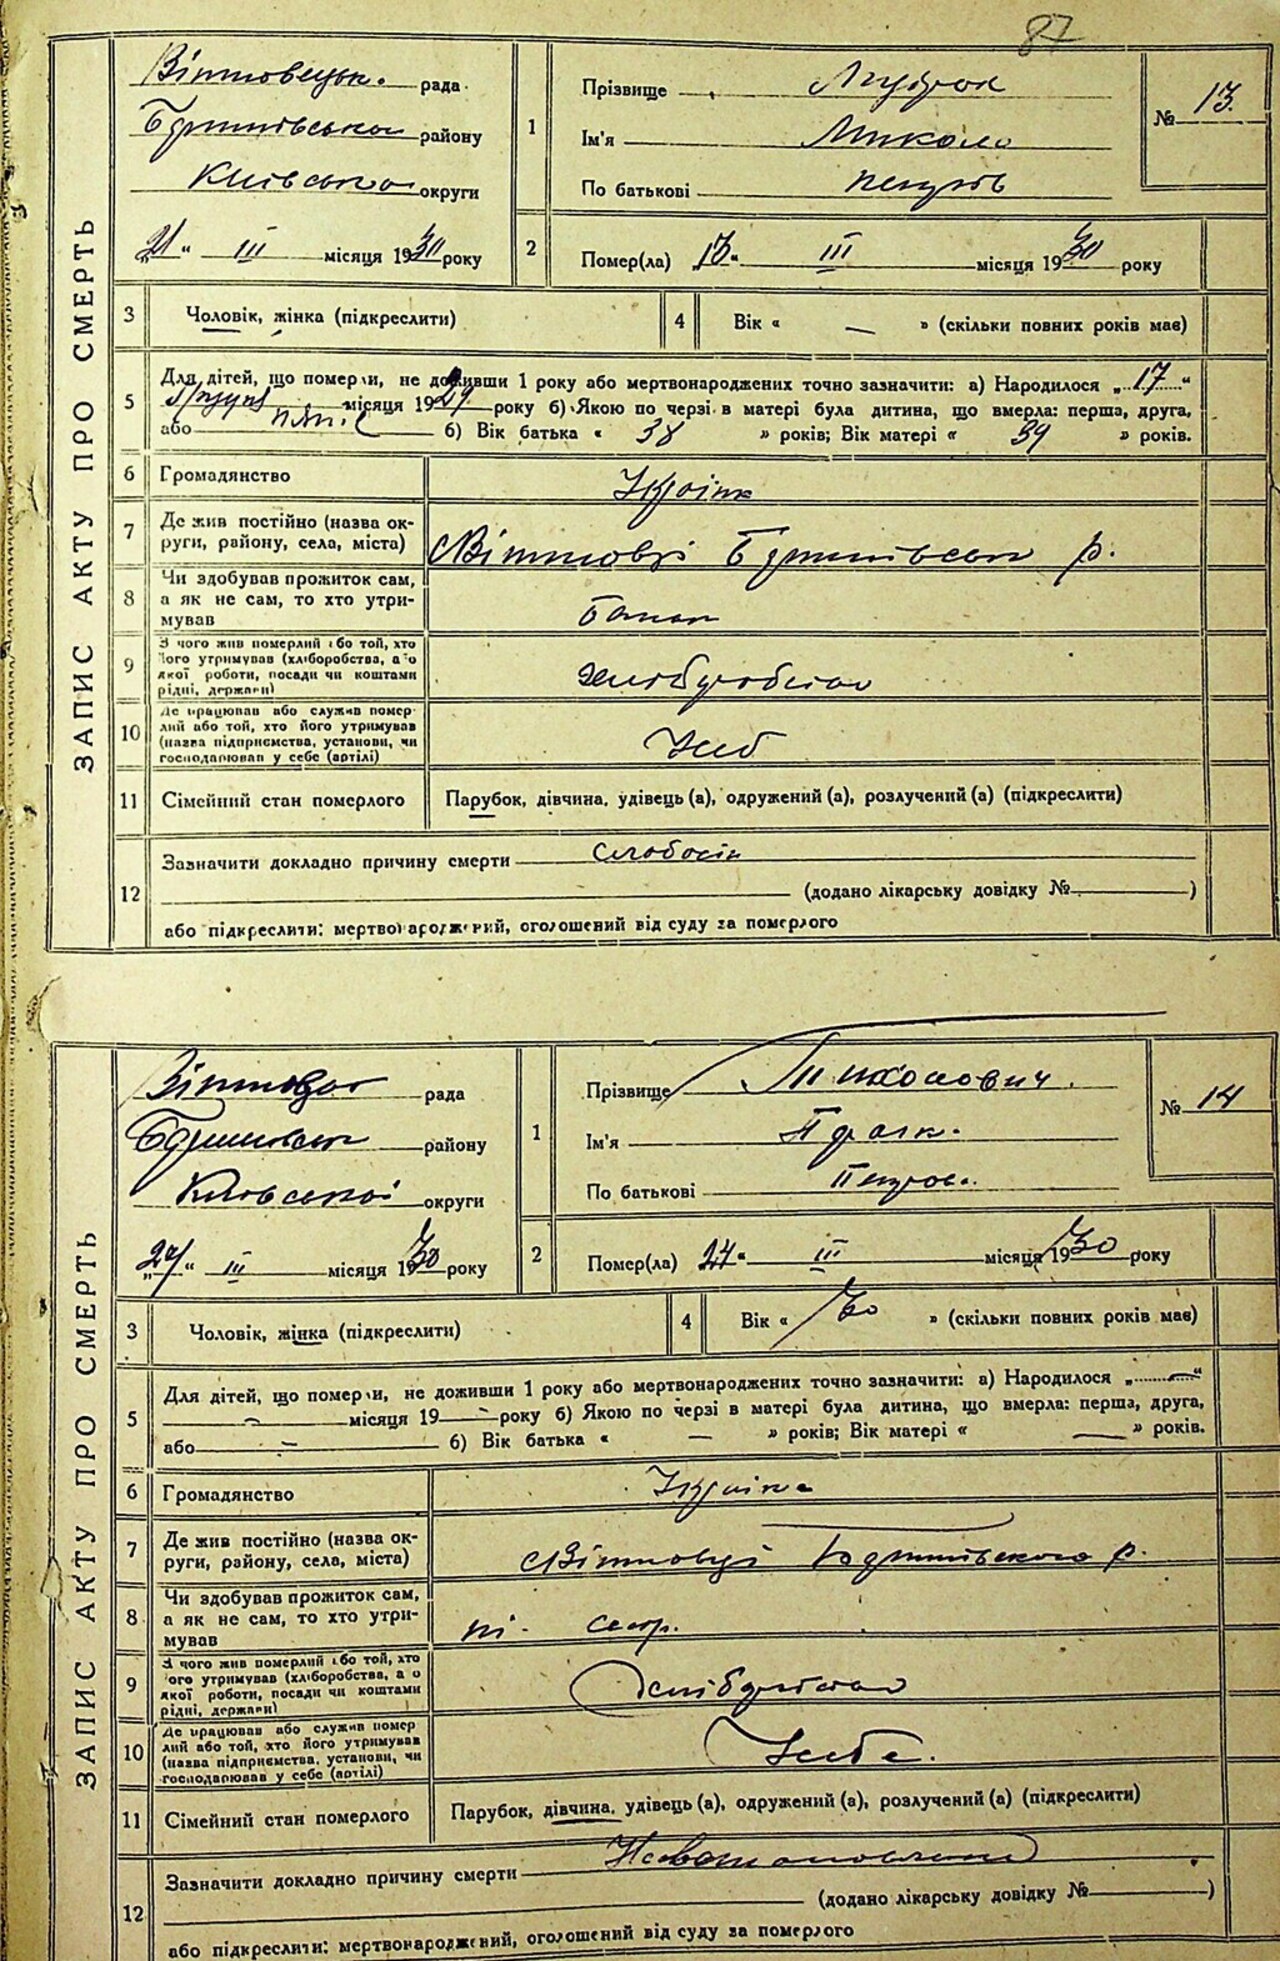 87
ЗАПИС АКТУ ПРО СМЕРТЬ
рада
району
Київської округи
21 " III місяця 1930 року
1
Прізвище
Ім'я Микола
По батькові
№ 13.
2
Помер(ла) „13" III місяця 1930 року
3
Чоловік, жінка (підкреслити)
4
Вік « — » (скільки повних років має)
5
Для дітей, що померли, не доживши 1 року або мертвонароджених точно зазначити: а) Народилося „17"
місяця 1929 року б) Якою по черзі в матері була дитина, що вмерла: перша, друга,
або б) Вік батька « 38 » років; Вік матері « 34 » років.
6
Громадянство
7
Де жив постійно (назва ок-
руги, району, села, міста)
р.
8
Чи здобував прожиток сам,
а як не сам, то хто утри-
мував
Батько
9
З чого жив померлий або той, хто
його утримував (хліборобства, або
якої роботи, посади чи коштами
рідні, держави)
10
Де працював або служив помер-
лий або той, хто його утримував
(назва підприємства, установи, чи
господарював у себе (артілі)
11
Сімейний стан померлого
Парубок, дівчина, удівець (а), одружений (а), розлучений (а) (підкреслити)
12
Зазначити докладно причину смерти слабосін
(додано лікарську довідку № )
або підкреслити: мертвонароджений, оголошений від суду за померлого
ЗАПИС АКТУ ПРО СМЕРТЬ
рада
району
Київської округи
24 " III місяця 1930 року
1
Прізвище Тихонович.
Ім'я
По батькові Петров.
№ 14
2
Помер(ла) 24 " III місяця 1930 року
3
Чоловік, жінка (підкреслити)
4
Вік « 30 » (скільки повних років має)
5
Для дітей, що померли, не доживши 1 року або мертвонароджених точно зазначити: а) Народилося „ — "
— місяця 19 — року б) Якою по черзі в матері була дитина, що вмерла: перша, друга,
або — б) Вік батька « — » років; Вік матері « — » років.
6
Громадянство
7
Де жив постійно (назва ок-
руги, району, села, міста)
р.
8
Чи здобував прожиток сам,
а як не сам, то хто утри-
мував
9
З чого жив померлий або той, хто
його утримував (хліборобства, або
якої роботи, посади чи коштами
рідні, держави)
10
Де працював або служив помер
лий або той, хто його утримував
(назва підприємства, установи, чи
господарював у себе (артілі)
У себе.
11
Сімейний стан померлого
Парубок, дівчина, удівець (а), одружений (а), розлучений (а) (підкреслити)
12
Зазначити докладно причину смерти
(додано лікарську довідку № )
або підкреслити: мертвонароджений, оголошений від суду за померлого